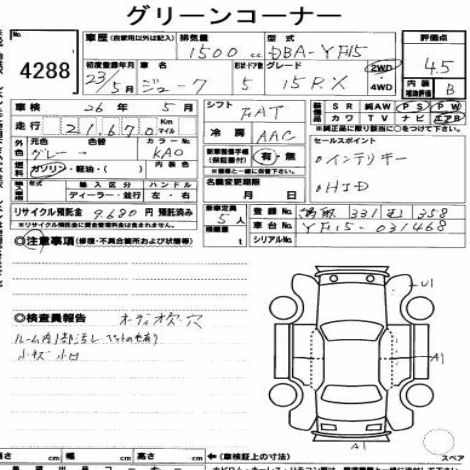 グリーンコーナー
4288
車歴 (自家用以外は記入) 排気量 1500 cc 型式 DBA-YF15 評価点
初度登録年月 23/5月 車名 ジューク 形状ドア数 5 グレード 15RX 2WD 4WD 4.5
内装 補助評価 B
車検 26年 5月 シフト FAT 装備品 SR 純AW PS PW
走行 21,670 Km マイル 冷房 AAC カワ TV ナビ エアB
※純正品に限り該当に○をつけて下さい。
外元色 グレー 色替 カラーNo. KAD 車両整備手帳 (保証書付) 有・無 セールスポイント
燃料 ガソリン・軽油・( ) 内装色 ※書類と一緒に保管 ・インテリキー
年式 輸入区分 ハンドル 名義変更期限 ・HID
ディーラー・並行 左・右 月 日
リサイクル預託金 9,680 円 預託済み 乗車定員 5人 登録No. 331 358
※リサイクル預託金に資金管理料金は含まれません。 車台No. YF15-031468
◎注意事項 (修復・不具合箇所および状態等) シリアルNo.
U1
◎検査員報告 オーディオ欠、穴
ルーム内1部汚レ
小キズ 小凹
A1
A1
長さ cm 幅 cm 高さ cm ←(車検証上の寸法) スペア